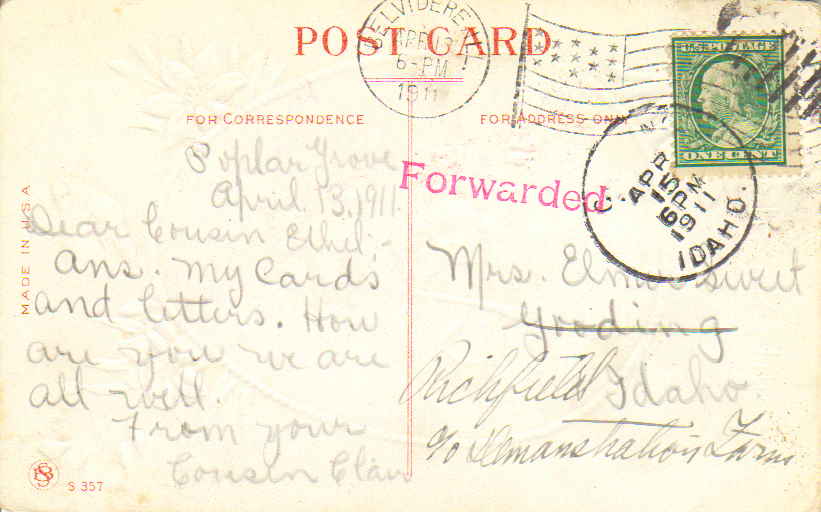 POST CARD
BELVIDERE
APR 13
6-PM
1911
U.S. POSTAGE
ONE CENT
FOR CORRESPONDENCE
FOR ADDRESS ONLY
Forwarded
APR 15
6 PM
1911
IDAHO.
MADE IN U.S.A
Poplar Grove
April 13, 1911
Dear Cousin Ethel:-
ans. my Cards
and letters. How
are you we are
all well.
From your
Cousin Clair
Mrs. Elmer Sweet
Gooding
Richfield Idaho.
c/o Demonstration Farm
S 357